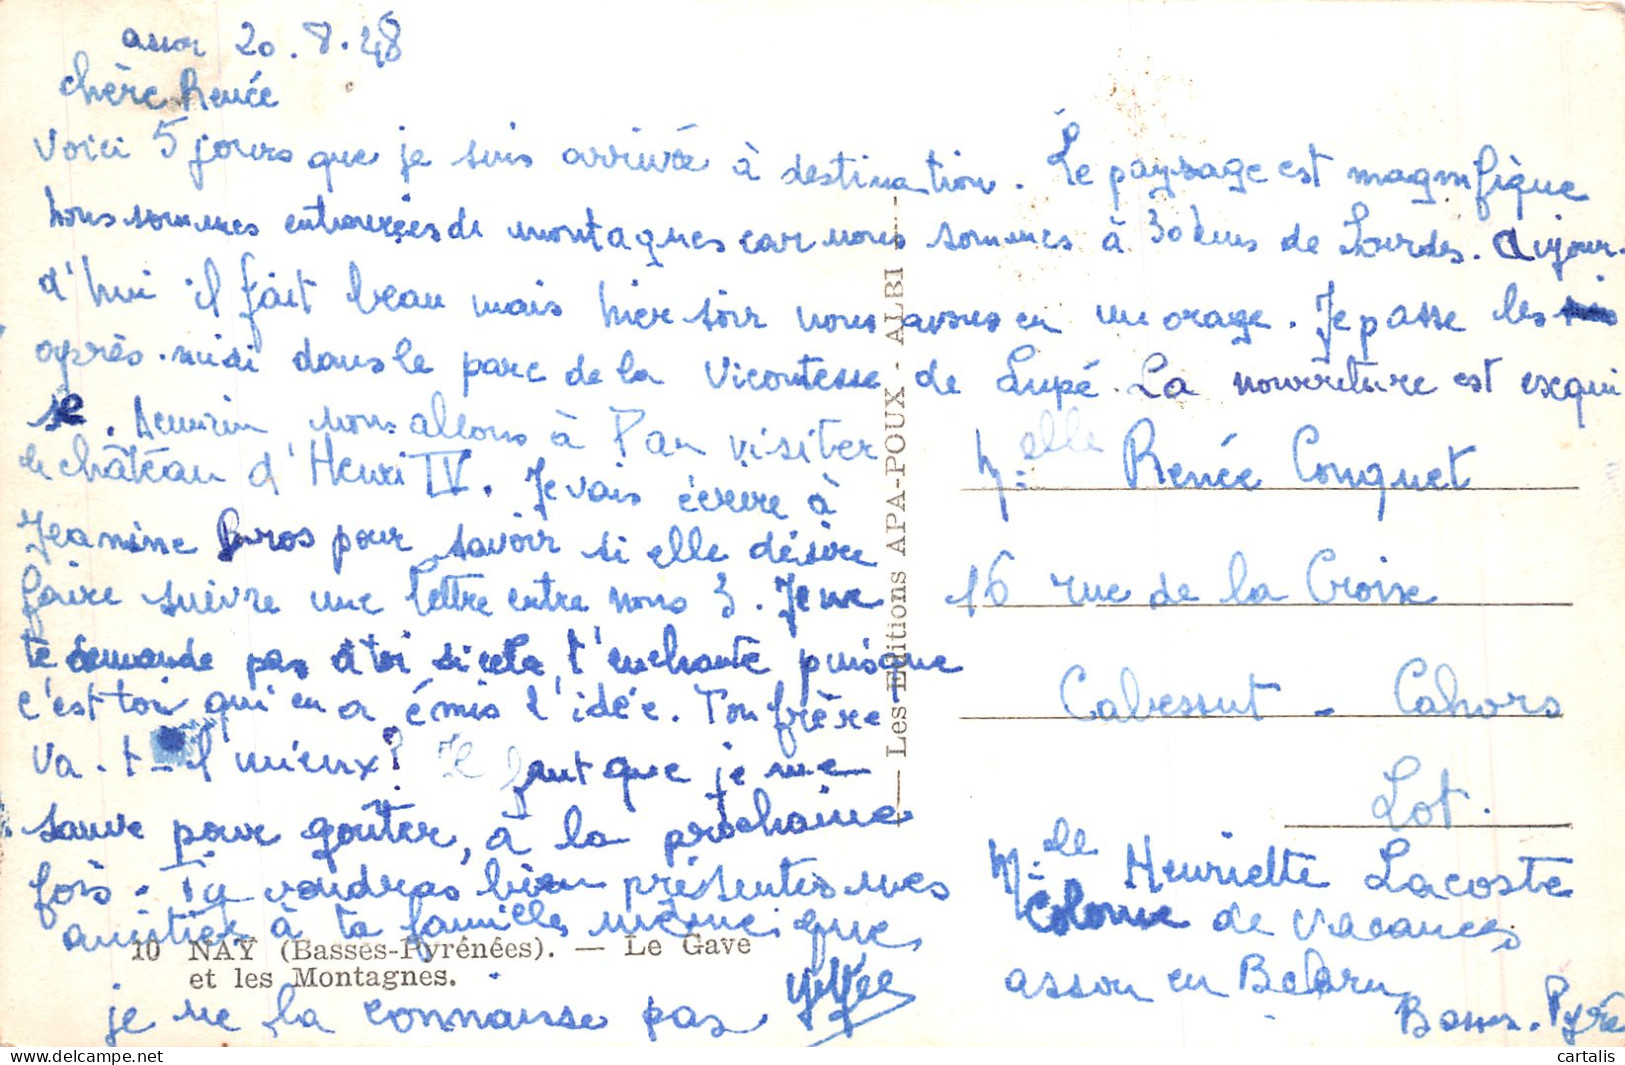 asson 20.8.48
chère Renée
Voici 5 jours que je suis arrivée à destination. Le paysage est magnifique
nous sommes entourées de montagnes car nous sommes à 30 kms de Lourdes. Aujour-
d'hui il fait beau mais hier soir nous avons eu un orage. Je passe les
après-midi dans le parc de la Vicomtesse de Lupé. La nourriture est exqui
se. Demain nous allons à Pau visiter
le château d'Henri IV. Je vais écrire à
Jeanine Gros pour savoir si elle désire
faire suivre une lettre entre nous 3. Je ne
te demande pas à toi si cela t'enchante puisque
c'est toi qui en a émis l'idée. Ton frère
va-t-il mieux? Il faut que je me
sauve pour goûter, à la prochaine
fois. Tu voudras bien présenter mes
amitiés à ta famille, même que
je ne la connaisse pas.
10 NAY (Basses-Pyrénées). — Le Gave
et les Montagnes.
— Les Editions APA-POUX - ALBI —
Melle Renée Conquet
16 rue de la Croix
Cabessut - Cahors
Lot.
Melle Henriette Lacoste
Colonie de Vacances
asson en Béarn
Basses-Pyré
cartalis